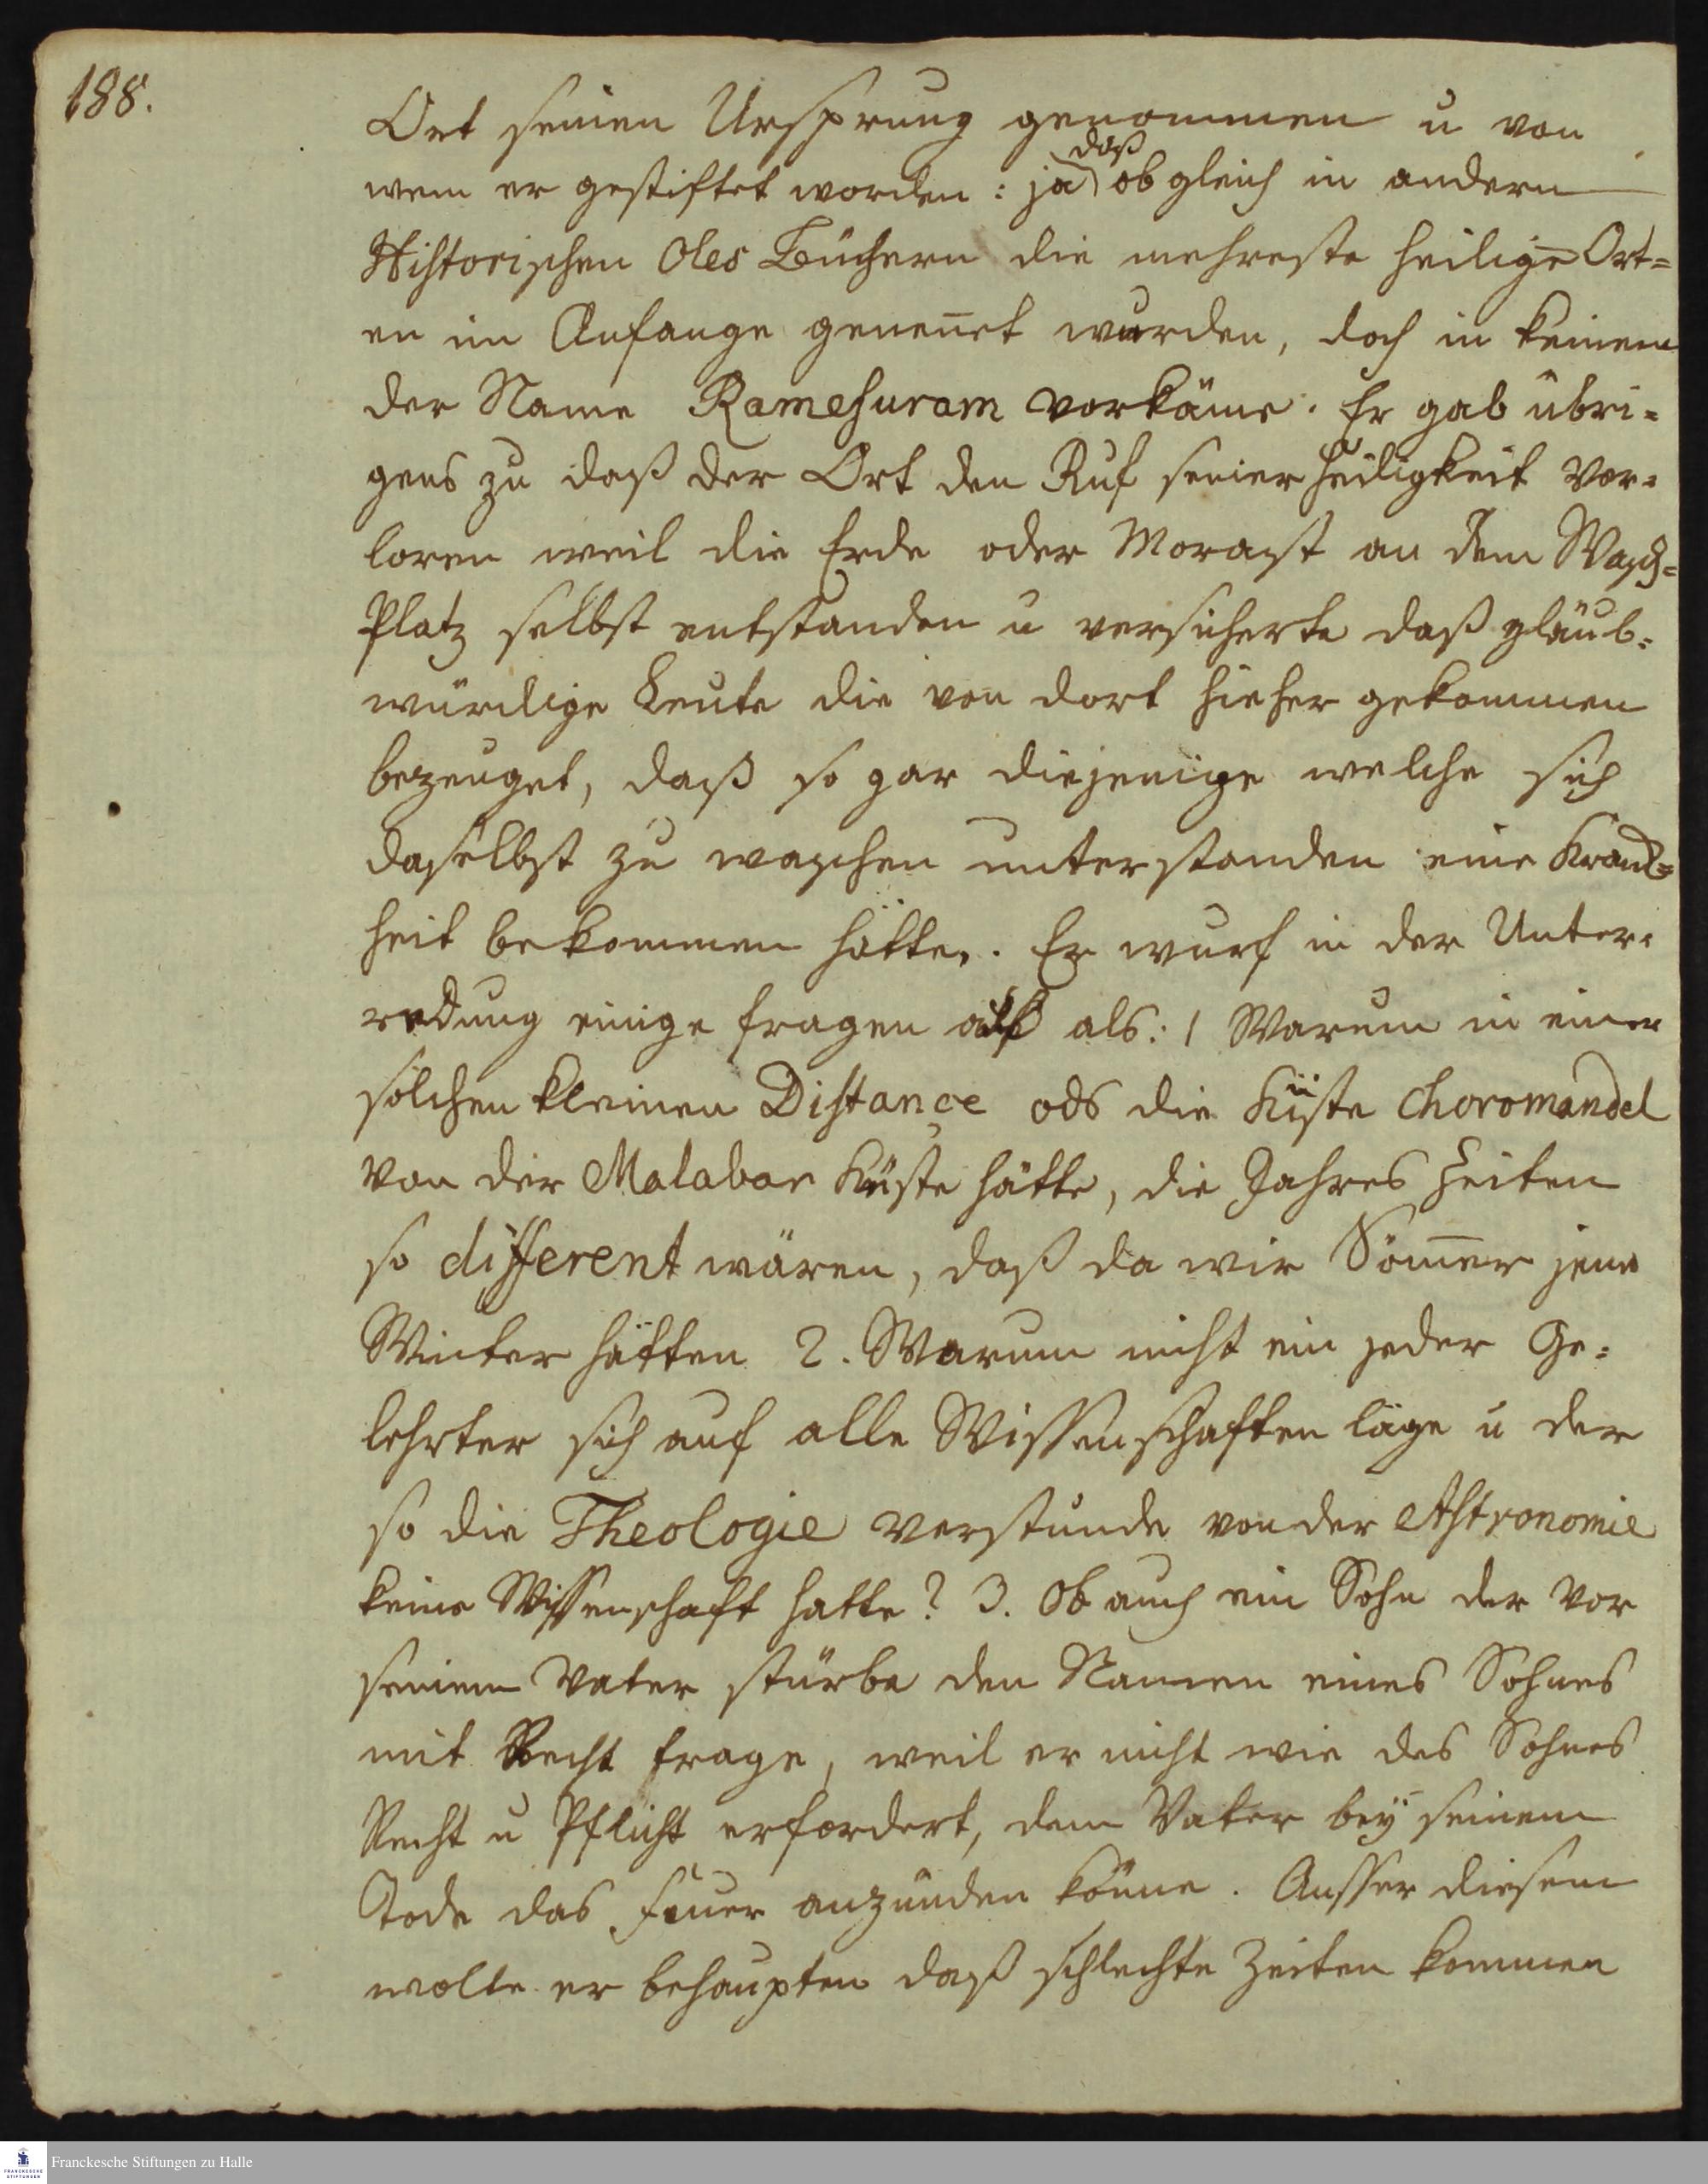 188.
Ort seinen Ursprung genommen u von
daß
wem er gestiftet worden: ja obgleich in andern
Historischen Oles Büchern die mehreste heilige Ort=
en im Anfange geneñet wurden, doch in keinem
der Name Ramesuram vorkäme. Er gab übri=
gens zu daß der Ort den Ruf seiner Heiligkeit ver=
loren weil die Erde oder Morast an dem Wasch=
Platz selbst entstanden u versicherte daß gläub=
würdige Leute die von dort hieher gekommen
bezeuget, daß so gar diejenige welche sich
daselbst zu waschen unterstanden eine Kranck=
heit bekommen hätten. Er wurf in der Unter=
redung einige Fragen auf als: 1 Warum in einer
solchen kleinen Distance als die Küste Choromandel
von der Malabar Küste hätte, die Jahres Zeiten
so different wären, daß da wir Som̄er jene
Winter hätten 2. Warum nicht ein jeder Ge=
lehrter sich auf alle Wissenschaften läge u der
so die Theologie verstunde von der Astronomie
keine Wissenschaft hatte? 3. Ob auch ein Sohn der vor
seinem Vater stürbe den Namen eines Sohnes
mit Recht trage, weil er nicht wie des Sohnes
Recht u Pflicht erfordert, dem Vater bey seinem
Tode das Feuer anzünden könne. Ausser diesem
wolte er behaupten daß schlechte Zeiten kommen
Franckesche Stiftungen zu Halle
FRANCKESCHE
STIFTUNGEN